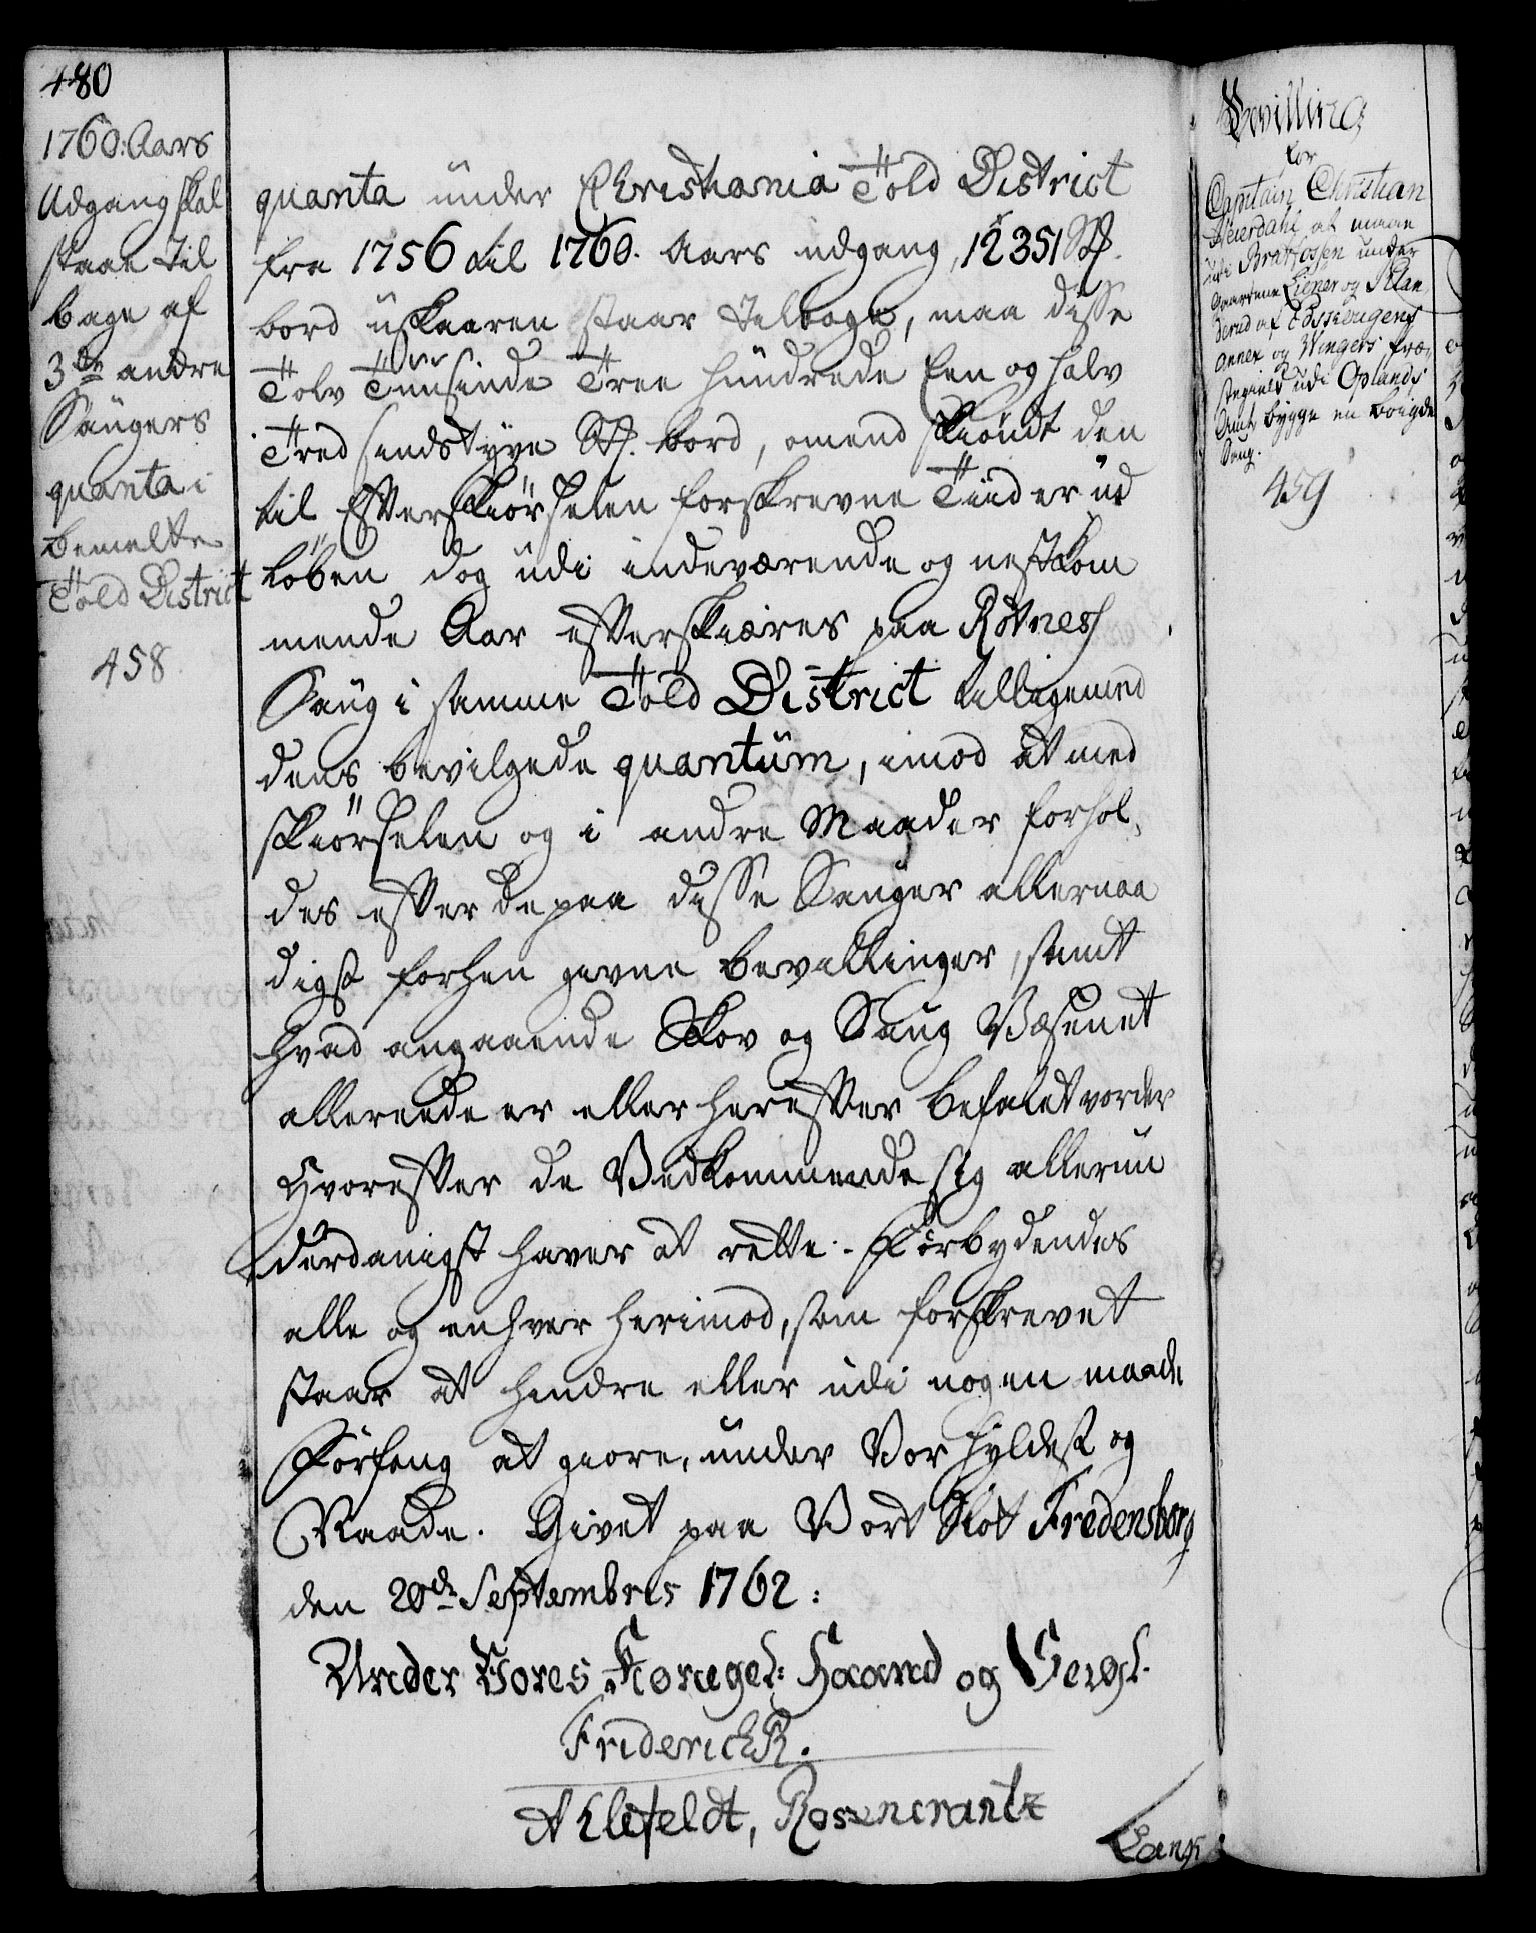 480
1760: Aars
Udgang skal
staae til
bage af
3de andre
Saugers
quanta i
bemelte
Told District
458
quanta under Christiania Told District
fra 1756 til 1760. Aars udgang, 12351 St.
bord uskaaren staar tilbage, maa disse
Tolv Tuusinde Tree hundrede Een og halv
Tredsindstyve St. bord, omend skiøndt den
til Efterskiørselen forskrevne Tiid er ud
løben dog udi indeværende og nestkom
mende Aar efterskiæres paa Rotness
Saug i samme Told District tilligemed
dens bevilgede quantum, imod at med
skiørselen og i andre Maader forhol,
des efter de paa disse Sauger allernaa
digst forhen givne bevillinger, samt
hvad angaaende Skov og Saug Væsenet
allereede er eller herefter befalet vorder
Hvorefter de Vedkommende sig allerun
derdanigst haver at rette. Forbydendes
alle og enhver herimod, som forskrevet
staar at hindre eller udi nogen maade
Forfang at giøre, under Vor Hyldest og
Naade. Givet paa Vort Slot Fredensborg
den 20de Septembris 1762:
Under Vores Kongel: Haand og Seigl.
Friderich R.
Ahlefeldt, Rosencrantz
Lange
Bevilling
for
Captain Christian
at maae
udi Bratfossen under
Gaardene Liener og Klan
derud af
Annex og Wingers Præ,
stegield udi Oplands
Amt, bygge en bøigde
Saug.
459